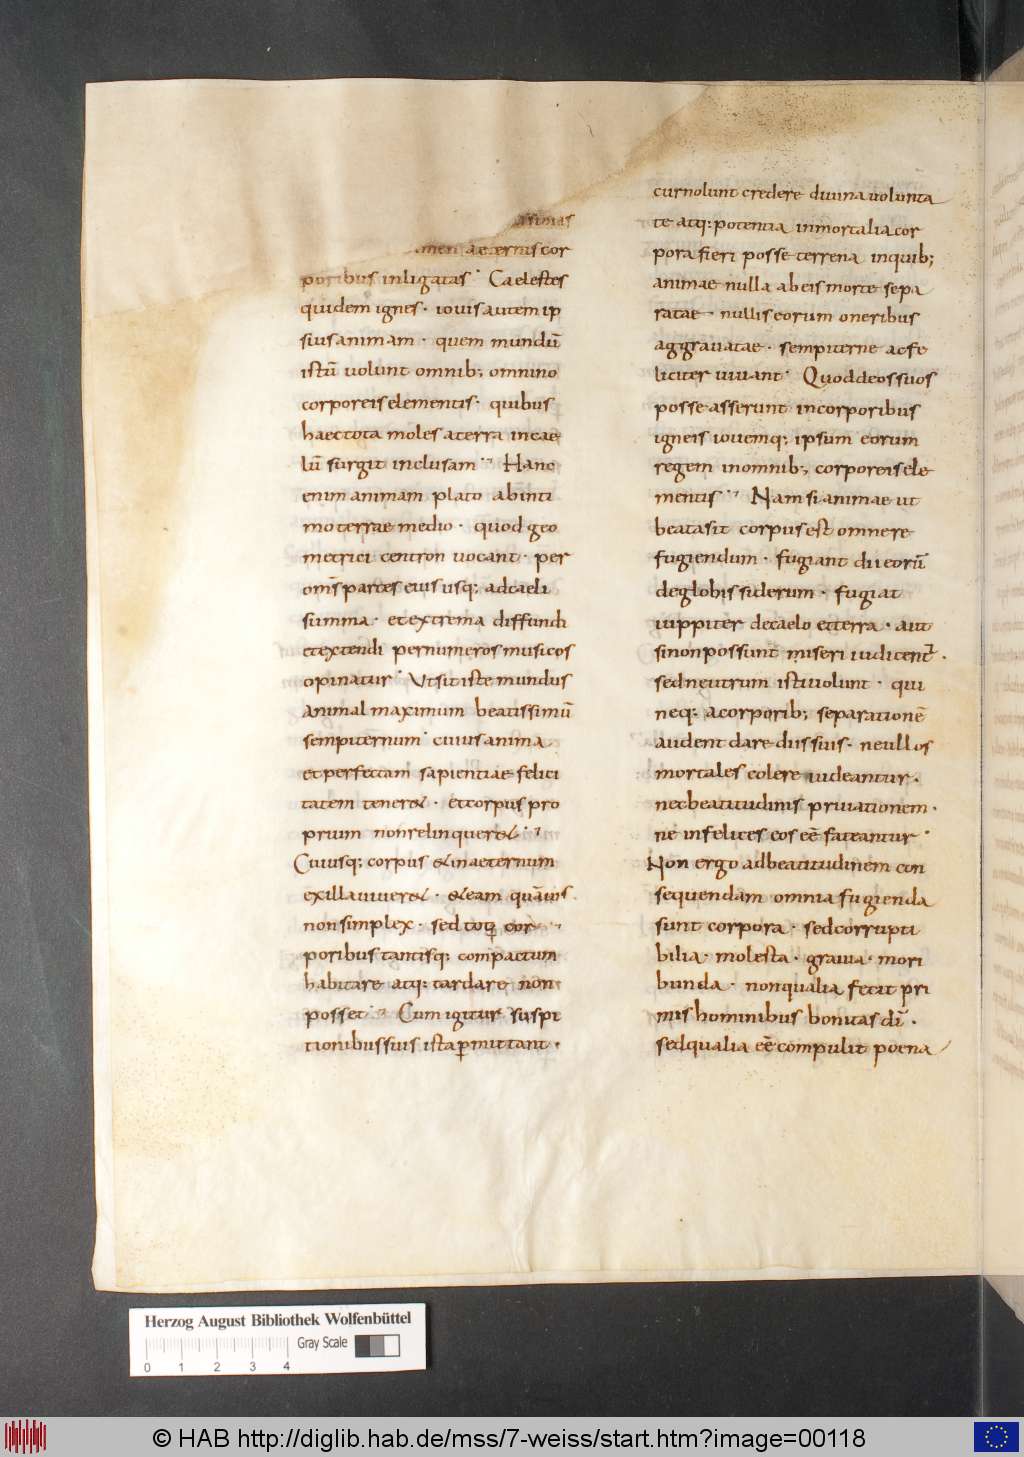 asimas
men aeternis cor
poribus inligatas. Caelestes
quidem ignes. iouis autem ip
sius animam. quem mundū
istū uolunt omnib; omnino
corporeis elementis. quibus
haec tota moles a terra in cae
lū surgit inclusam. Hanc
enim animam plato ab inti
mo terrae medio. quod geo
metrici centron uocant. per
om̄s partes eius usq; ad caeli
summa. et extrema diffundi
et extendi per numeros musicos
opinatur. Ut sit iste mundus
animal maximum beatissimū
sempiternum. cuius anima
et perfectam sapientiae felici
tatem teneret. et corpus pro
prium non relinqueret.
Cuiusq; corpus et in aeternum
ex illa uiueret. et eam quāuis
non simplex. sed tot cor
poribus tantisq; compactum
habitare atq; tardare non
posset. Cum igitur suspi
tionibus suis ista ꝑmittant.
cur nolunt credere diuina uolunta
te atq; potentia inmortalia cor
pora fieri posse terrena in quib;
animae nulla ab eis morte sepa
ratae. nullis eorum oneribus
aggrauatae. sempiterne ac fe
liciter uiuant. Quod deos suos
posse asserunt in corporibus
igneis iouemq; ipsum eorum
regem in omnib; corporeis ele
mentis. Nam si animae ut
beata sit corpus est omne re
fugiendum. fugiant dii eorū
de globis siderum. fugiat
iuppiter de caelo et terra. aut
si non possunt miseri iudicent.
sed neutrum isti uolunt. qui
neq; a corporib; separationē
audent dare diis suis. ne ullos
mortales colere uideantur.
nec beatitudinis priuationem.
ne infelices eos eē fateantur.
Non ergo ad beatitudinem con
sequendam omnia fugienda
sunt corpora. sed corrupti
bilia. molesta. grauia. mori
bunda. non qualia fecit pri
mis hominibus bonitas dī.
sed qualia eē compulit poena
Herzog August Bibliothek Wolfenbüttel
Gray Scale
0 1 2 3 4
© HAB http://diglib.hab.de/mss/7-weiss/start.htm?image=00118